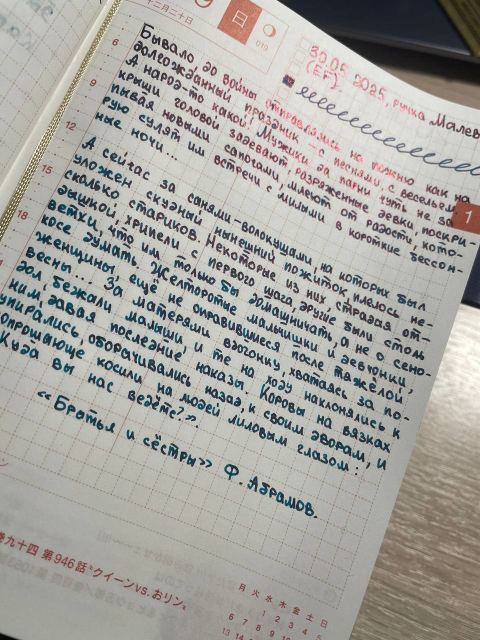 十二月二十日
日
019
30.05.2025, ручка Малев
(EF).
1
6
9
12
15
18
Бывало до войны отправлялись на пожню как на
долгожданный праздник – с песнями, с весельем.
А народ-то какой! Мужики да парни чуть не за
крыши головой задевают, разряженные девки, поскри-
пывая новыми сапогами, млеют от радости, кото-
рую сулят им встречи с милыми в короткие бессон-
ные ночи...
А сейчас за санями-волокушами, на которых был
уложен скудный нынешний пожиток, плелось не-
сколько стариков. Некоторые из них, страдая от-
дышкой, хрипели с первого шага, другие были столь
ветхи, что им только бы домашничать, а не о сено-
косе думать. Желторотые малышки и девчонки,
женщины, ещё не оправившиеся после тяжёлой
весны... За матерями вдогонку, хватаясь за по-
дол, бежали малыши, и те на ходу наклонялись к
ним, давая последние наказы. Коровы на вязках
упирались, оборачивались назад, к своим дворам, и
вопрошающе косили на людей лиловым глазом:
Куда вы нас ведёте?».
«Братья и сёстры» Ф. Абрамов.
巻九十四 第946話“クイーンvs.おリン”
月 火 水 木 金 土 日
1 2 3 4 5
6 7 8 9 10
13 14